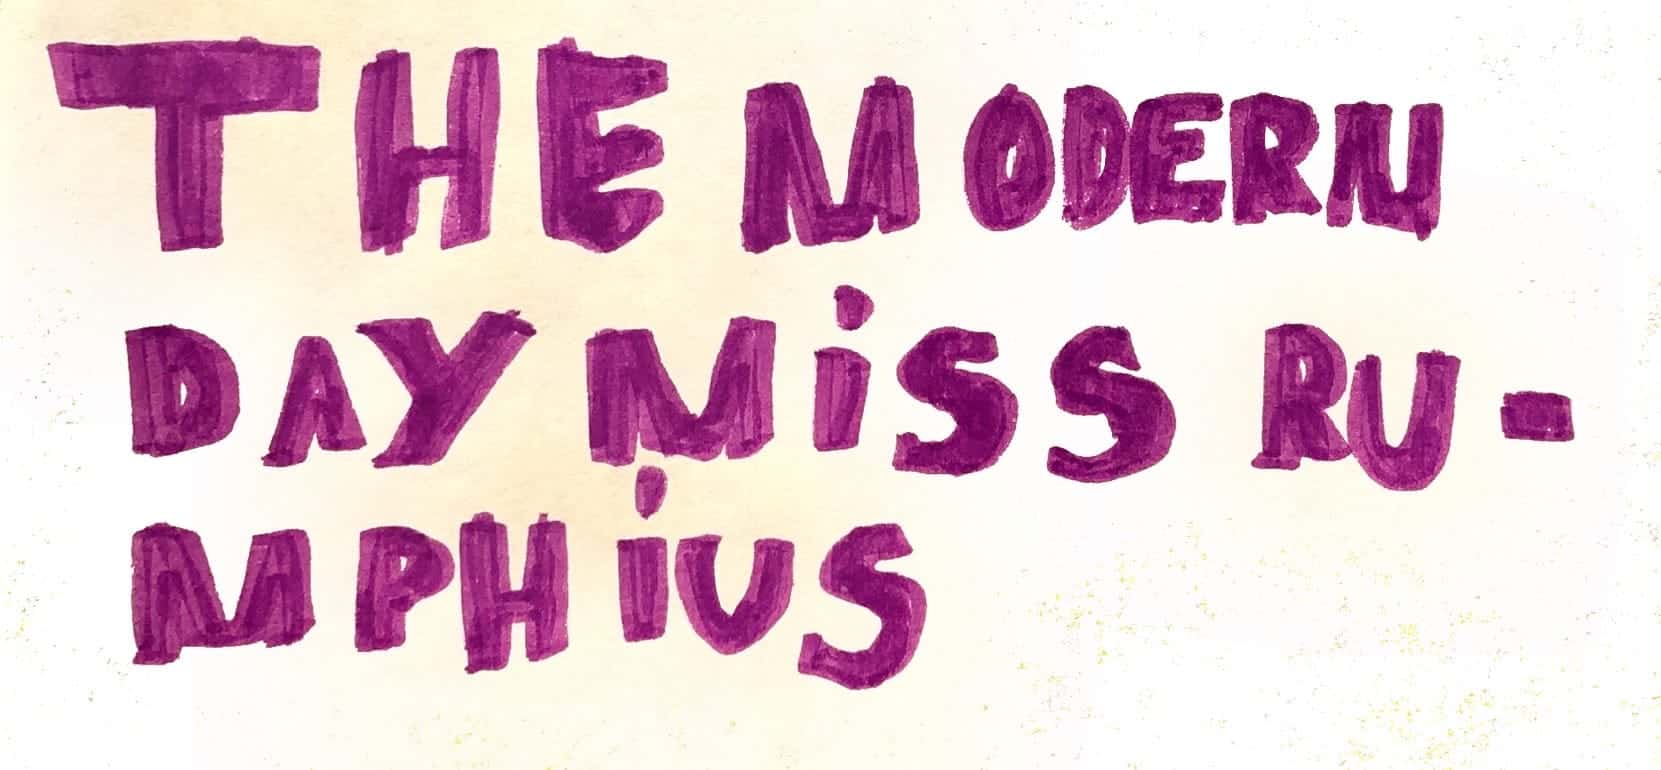 THE MODERN
DAY MiSS RU-
MPHiUS